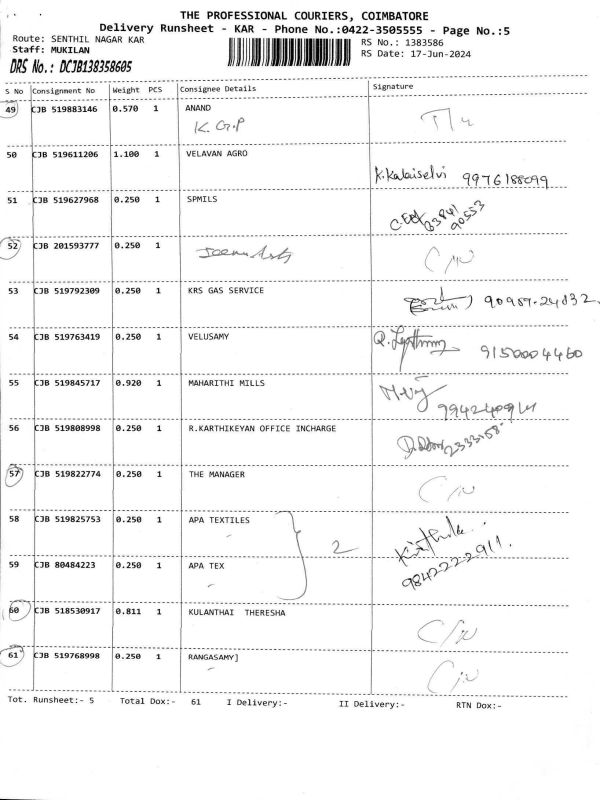 THE PROFESSIONAL COURIERS, COIMBATORE
Delivery Runsheet - KAR - Phone No.:0422-3505555 - Page No.:5
Route: SENTHIL NAGAR KAR
RS No.: 1383586
Staff: MUKILAN
RS Date: 17-Jun-2024
DRS No.: DCJB138358605
S No Consignment No Weight PCS Consignee Details Signature
49 CJB 519883146 0.570 1 ANAND
K. G.P
50 CJB 519611206 1.100 1 VELAVAN AGRO
K.Kalaiselvi 9976188099
51 CJB 519627968 0.250 1 SPMILS
63841
90553
52 CJB 201593777 0.250 1
53 CJB 519792309 0.250 1 KRS GAS SERVICE
90989-24832
54 CJB 519763419 0.250 1 VELUSAMY
9150004460
55 CJB 519845717 0.920 1 MAHARITHI MILLS
56 CJB 519808998 0.250 1 R.KARTHIKEYAN OFFICE INCHARGE
57 CJB 519822774 0.250 1 THE MANAGER
58 CJB 519825753 0.250 1 APA TEXTILES
2
59 CJB 80484223 0.250 1 APA TEX
9842222911.
60 CJB 518530917 0.811 1 KULANTHAI THERESHA
61 CJB 519768998 0.250 1 RANGASAMY]
Tot. Runsheet:- 5 Total Dox:- 61 I Delivery:- II Delivery:- RTN Dox:-